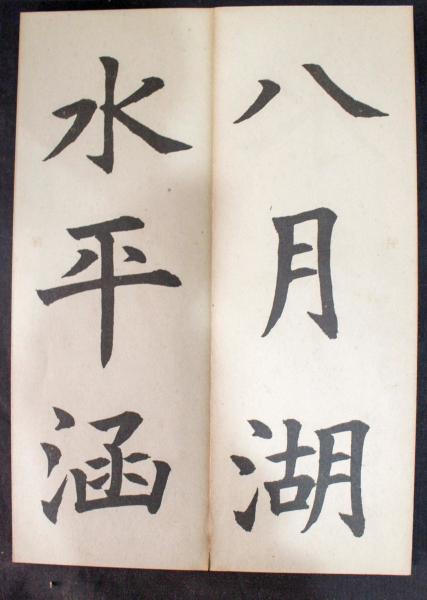 八月湖
水平涵